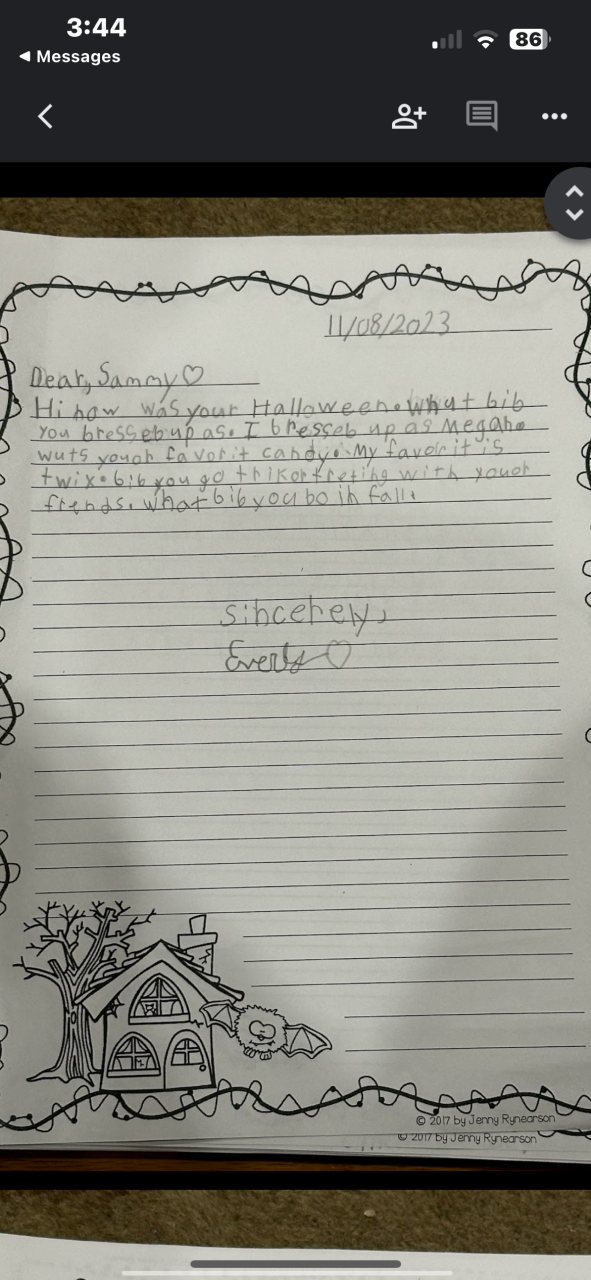 3:44
86
Messages
11/08/2023
Dear, Sammy♡
Hi how was your Halloween. What bib
you bresseb up as. I bresseb up as Megan.
wuts youor favorit candy. My favorit is
twix. bib you go trikortreting with youor
frends. what bib you bo in fall.
sincerely,
♡
© 2017 by Jenny Rynearson
© 2017 by Jenny Rynearson